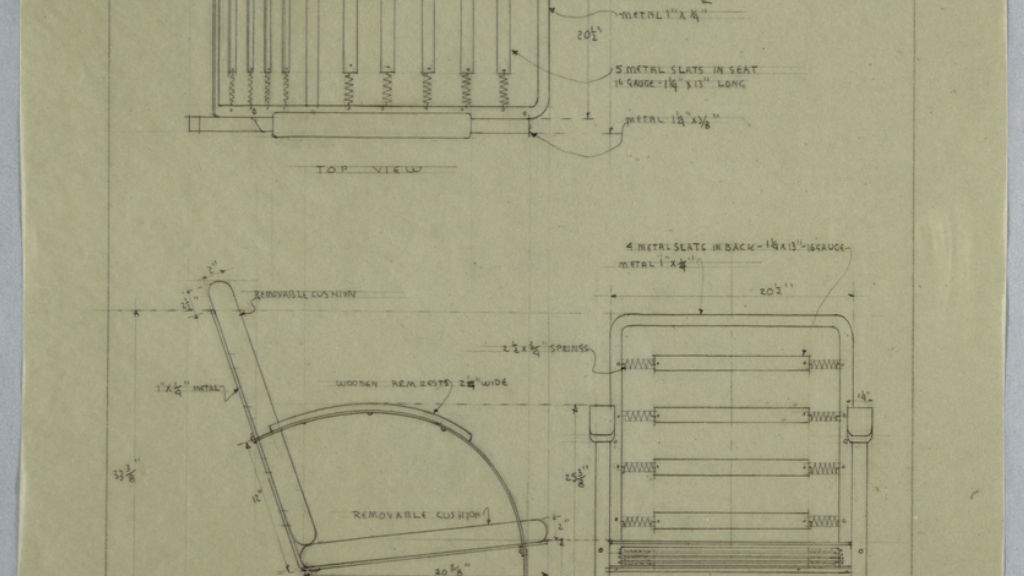 METAL 1" X ¼"
20½"
5 METAL SLATS IN SEAT
16 GAUGE - 1¼" X 13" LONG
METAL 1¼" X 3/8"
TOP VIEW
4 METAL SLATS IN BACK - 1¼ X 13" - 16 GAUGE
METAL 1" X ¼"
2"
REMOVABLE CUSHION
20½"
2½ X ¾" SPRINGS
1" X ¼" METAL
WOODEN ARM RESTS, 2¼" WIDE
33 3/8"
REMOVABLE CUSHION
2"
20 5/8"